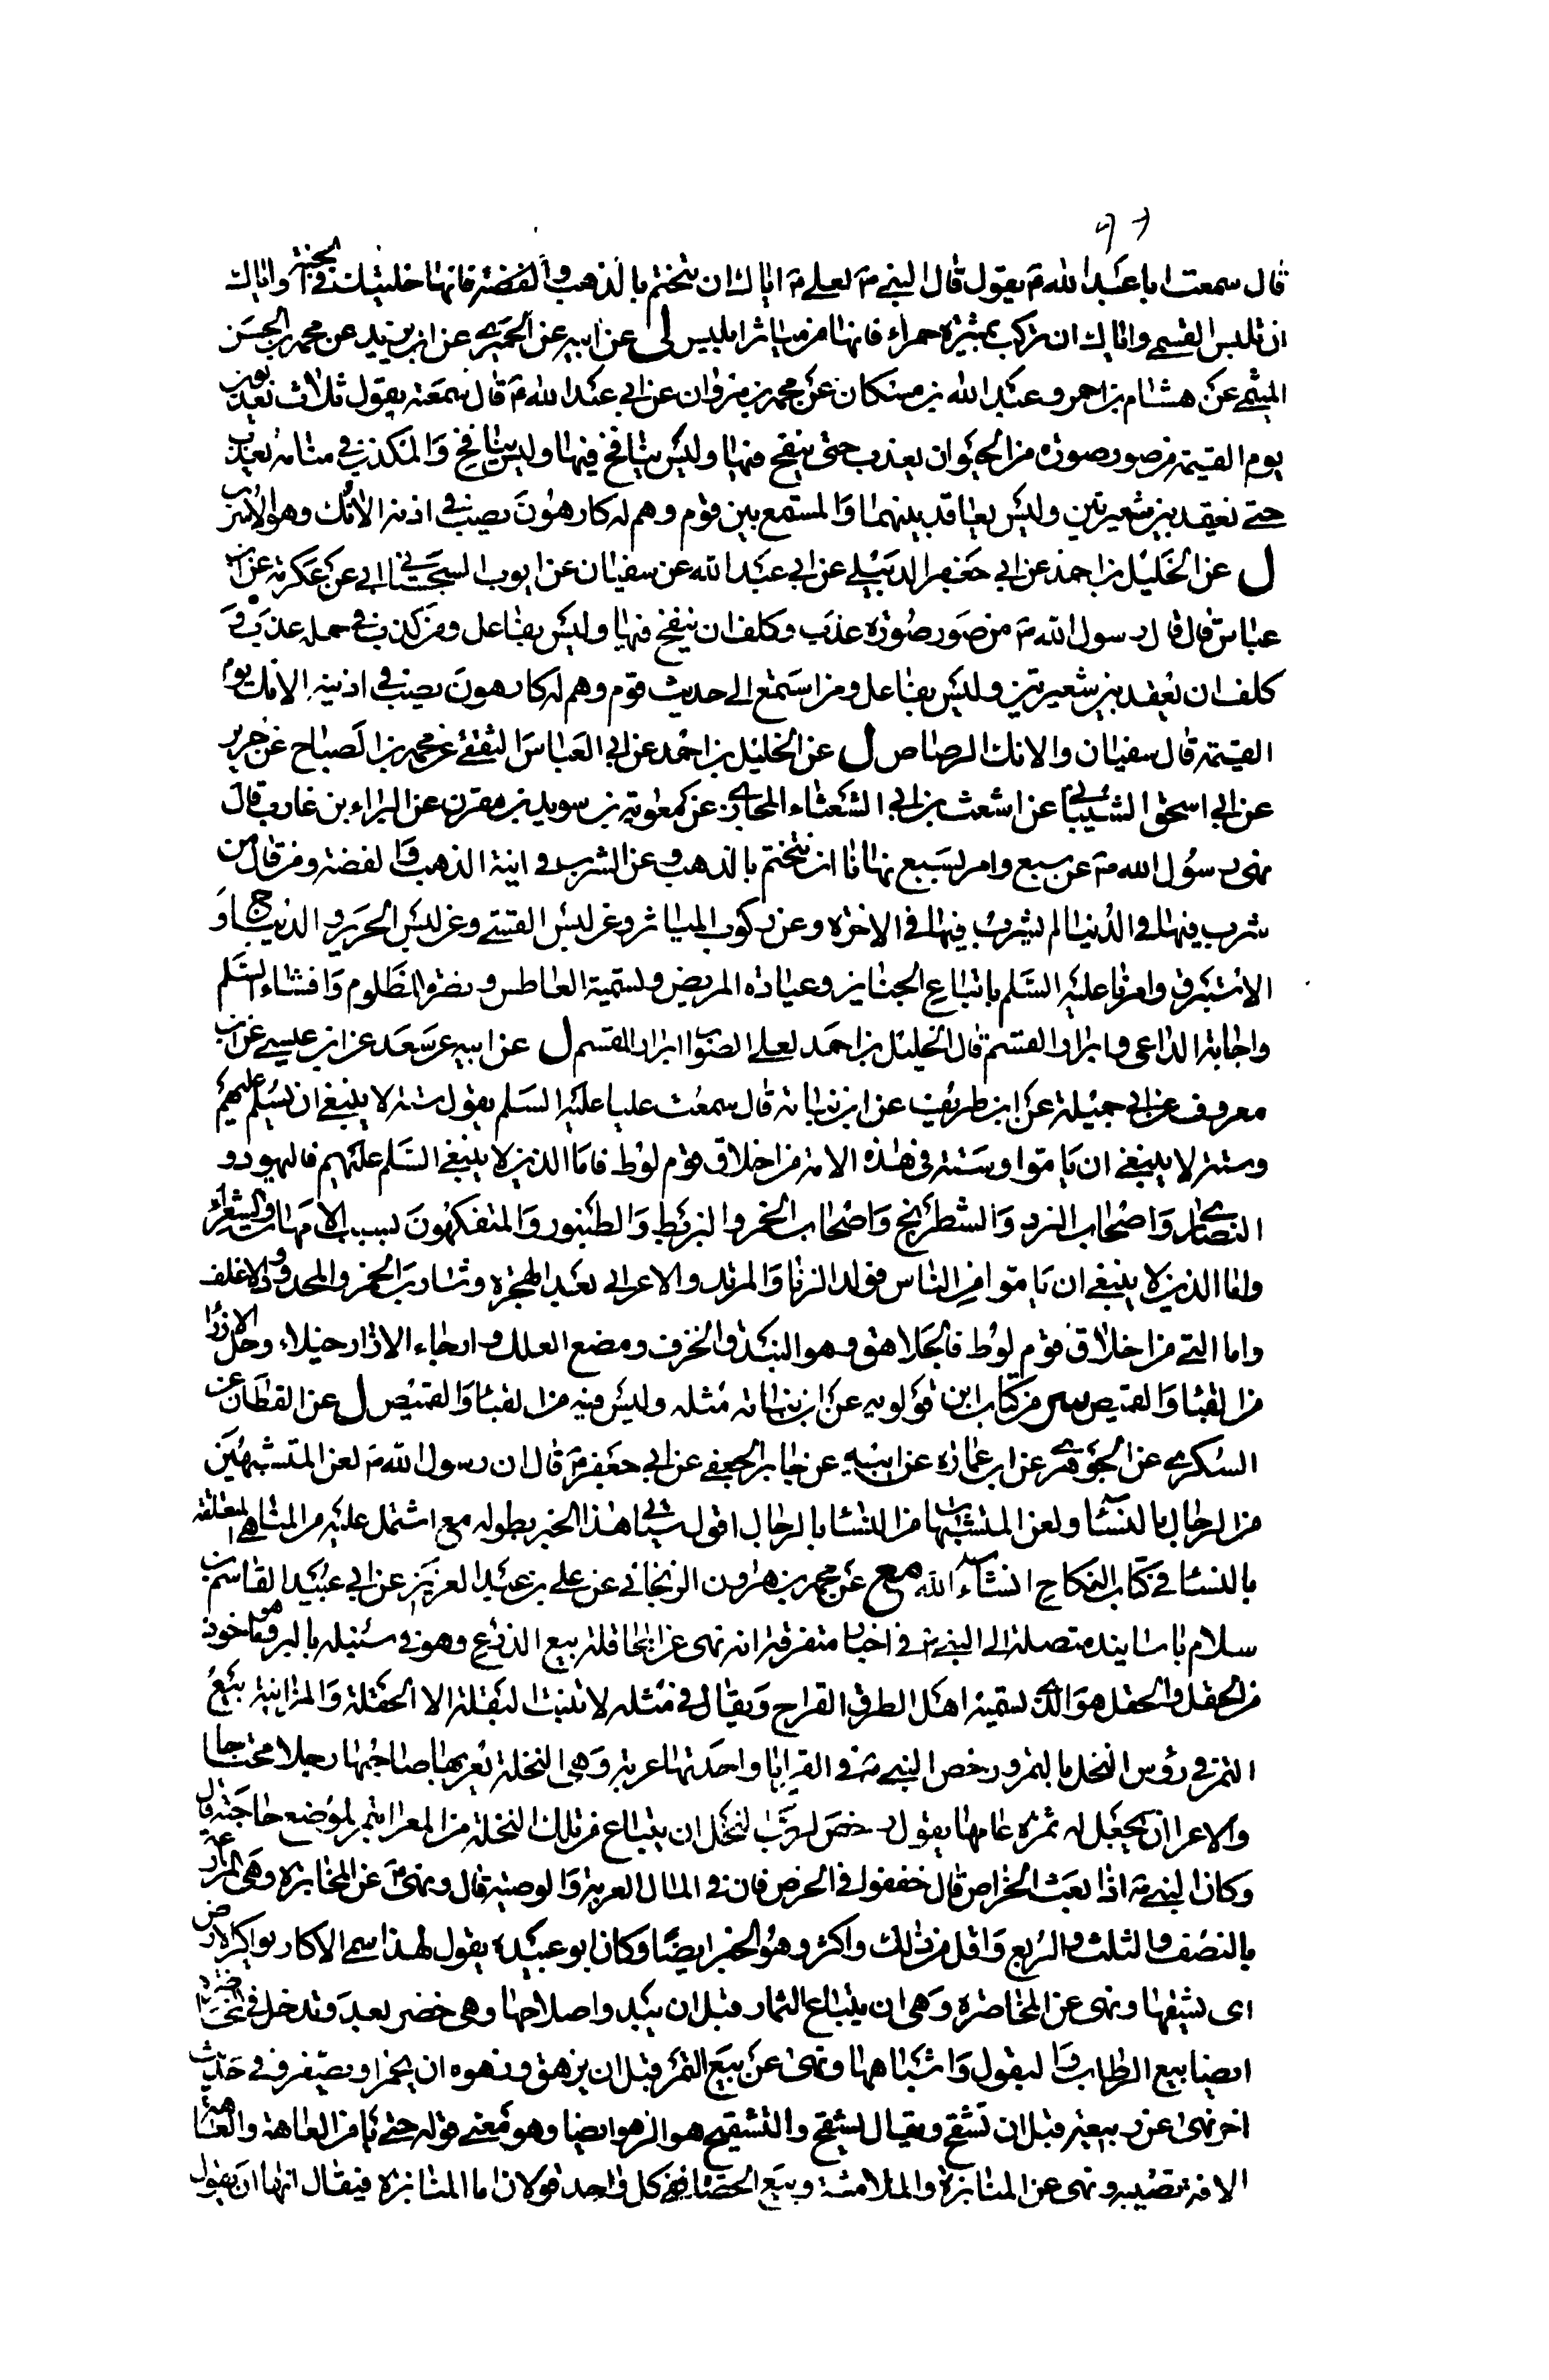 قال سمعت ابا عبد الله ع يقول قال النبي ص لعلي ع اياك ان تتختم بالذهب والفضة فانها حليتك في الجنة واياك
ان تلبس القسي واياك ان تركب بميثرة حمراء فانها من مياثر ابليس لى عن ابيه عن الحميري عن ابن يزيد عن محمد بن الحسن
الميثمي عن هشام بن احمر وعبد الله بن مسكان عن محمد بن مروان عن ابي عبد الله ع قال سمعته يقول ثلاث يعذبون
يوم القيمة من صور صورة من الحيوان يعذب حتى ينفخ فيها وليس بنافخ فيها وليس بنافخ والمكذب في منامه يعذب
حتى يعقد بين شعيرتين وليس بعاقد بينهما والمستمع بين قوم وهم له كارهون يصب في اذنه الآنك وهو الاسرب
ل عن الخليل بن احمد عن ابي جعفر الدبيلي عن ابي عبد الله عن سفيان عن ايوب السجستاني عن عكرمة عن ابن
عباس قال قال رسول الله ص من صور صورة عذب وكلف ان ينفخ فيها وليس بفاعل ومن كذب في حمله عذب و
كلف ان يعقد بين شعيرتين وليس بفاعل ومن استمع الى حديث قوم وهم له كارهون يصب في اذنيه الانك يوم
القيمة قال سفيان والانك الرصاص ل عن الخليل بن احمد عن ابي العباس الثقفي عن محمد بن الصباح عن جرير
عن ابي اسحق الشيباني عن اشعث بن ابي الشعثاء المحاربي عن معوية بن سويد بن مقرن عن البراء بن عازب قال
نهى رسول الله ص عن سبع وامر بسبع نهانا ان نتختم بالذهب وعن الشرب في انية الذهب والفضة وقال من
شرب فيها في الدنيا لم يشرب فيها في الاخرة وعن ركوب المياثر وعن لبس القسي وعن لبس الحرير والديباج و
الاستبرق وامرنا عليه السلم باتباع الجنايز وعيادة المريض وتسمية العاطس ونصرة المظلوم وافشاء السلم
واجابة الداعي وابرار القسم قال الخليل بن احمد لعل الصواب ابرار المقسم ل عن ابيه عن سعد عن ابن عيسى عن ابن
معروف عن ابي جميلة عن ابن طريف عن ابن نباتة قال سمعت عليا عليه السلم يقول ستة لا ينبغي ان يسلم عليهم
وستة لا ينبغي ان يأموا وستة في هذه الامة من اخلاق قوم لوط فاما الذين لا ينبغي السلم عليهم فاليهود و
النصارى واصحاب النرد والشطرنج واصحاب الخمر والبربط والطنبور والمتفكهون بسب الامهات والشعراء
واما الذين لا ينبغي ان يأموا من الناس فولد الزنا والمرتد والاعرابي بعد الهجرة وشارب الخمر والمحدود والاغلف
واما التي من اخلاق قوم لوط فالجلاهق وهو البندق والخزف ومضغ العلك وارخاء الازار خيلاء وحل الازرار
من القبا والقميص سر من كتاب ابن قولويه عن ابن نباتة مثله وليس فيه من القبا والقميص ل عن القطان عن
السكري عن الجوهري عن ابن عمارة عن ابيه عن جابر الجعفي عن ابي جعفر ع قال ان رسول الله ص لعن المتشبهين
من الرجال بالنسا ولعن المتشبهات من النسا بالرجال اقول سيأتي هذا الخبر بطوله مع اشتمل عليه من المناهي المتعلقة
بالنسا في كتاب النكاح انشاء الله مع عن محمد بن هارون الزنجاني عن علي بن عبد العزيز عن ابي عبيد القاسم بن
سلام باسانيده متصلة الى النبي ص في اخبار متفرقة انه نهى عن المحاقلة بيع الزرع وهو في سنبله بالبر وهو مأخوذ
من الحقل والحقل هو الذي تسميه اهل العراق القراح ويقال في مثله لا تنبت البقلة الا الحقلة والمزابنة بيع
الثمر في رؤس النخل بالتمر ورخص النبي ص في العرايا واحدتها عرية وهي النخلة يعريها صاحبها رجلا محتاجا
والاعراء ان يجعل له ثمرة عامها يقول رخص لرب النخل ان يبتاع من تلك النخلة من المعرا بتمر لموضع حاجته قال
وكان النبي ص اذا بعث الخراص قال خففوا في الخرص فان في المال العرية والوصية قال ونهى ص عن المخابرة وهي المزارعة
بالنصف والثلث والربع واقل من ذلك واكثر وهو الخبر ايضا وكان ابو عبيدة يقول لهذا سمي الاكار يواكر الارض
اى يشقها ونهى عن المخاضرة وهي ان يبتاع الثمار قبل ان يبدو اصلاحها وهي خضر بعد وتدخل في المخاضرة
ايضا بيع الرطاب والبقول واشباهها ونهى عن بيع التمر قبل ان يزهو وزهوه ان يحمر او يصفر وفي حديث
اخر نهى عن بيعه قبل ان تشقح ويقال يشقح والتشقيح هو الزهو ايضا وهو معنى قوله حتى يأمن العاهة والعاهة
الافة تصيبه ونهى عن المنابزة والملامسة وبيع الحصاة ففي كل واحدة قولان اما المنابزة فيقال انها ان يقول